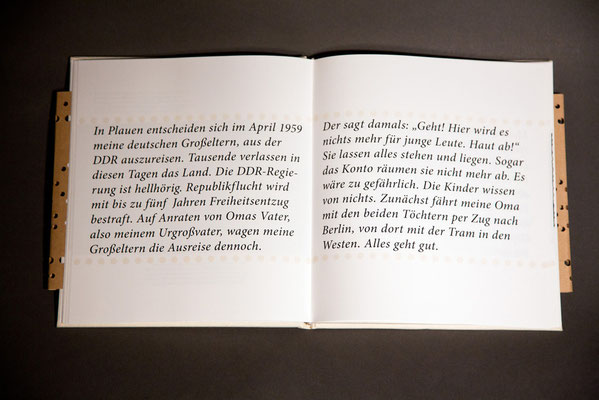 In Plauen entscheiden sich im April 1959
meine deutschen Großeltern, aus der
DDR auszureisen. Tausende verlassen in
diesen Tagen das Land. Die DDR-Regie-
rung ist hellhörig. Republikflucht wird
mit bis zu fünf Jahren Freiheitsentzug
bestraft. Auf Anraten von Omas Vater,
also meinem Urgroßvater, wagen meine
Großeltern die Ausreise dennoch.
Der sagt damals: „Geht! Hier wird es
nichts mehr für junge Leute. Haut ab!“
Sie lassen alles stehen und liegen. Sogar
das Konto räumen sie nicht mehr ab. Es
wäre zu gefährlich. Die Kinder wissen
von nichts. Zunächst fährt meine Oma
mit den beiden Töchtern per Zug nach
Berlin, von dort mit der Tram in den
Westen. Alles geht gut.